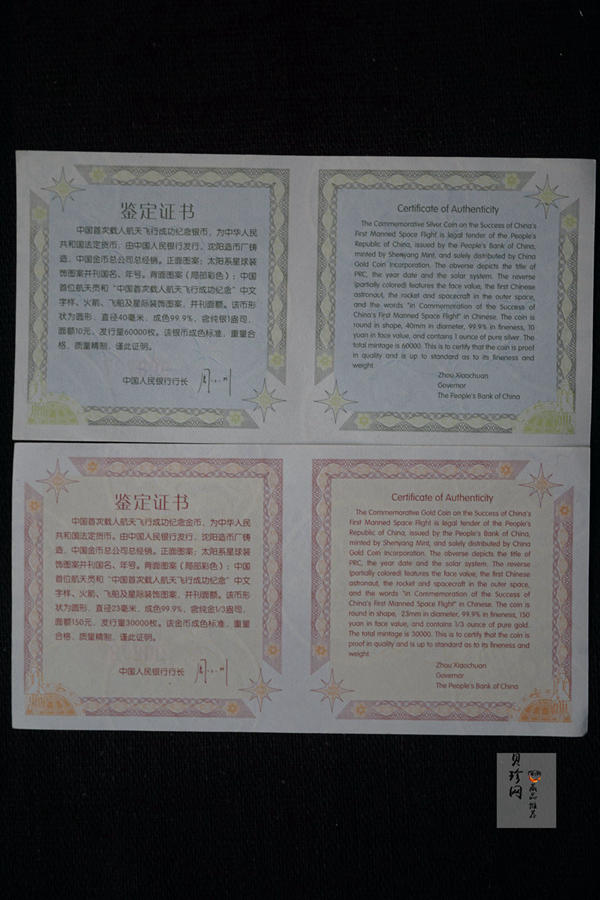 鉴定证书
中国首次载人航天飞行成功纪念银币，为中华人民
共和国法定货币，由中国人民银行发行，沈阳造币厂铸
造，中国金币总公司总经销。正面图案：太阳系星球装
饰图案并刊国名、年号。背面图案（局部彩色）：中国
首位航天员和“中国首次载人航天飞行成功纪念”中文
字样、火箭、飞船及星际装饰图案，并刊面额。该币形
状为圆形，直径40毫米，成色99.9%，含纯银1盎司，
面额10元，发行量60000枚。该银币成色标准，重量合
格，质量精制，谨此证明。
中国人民银行行长
Certificate of Authenticity
The Commemorative Silver Coin on the Success of China's
First Manned Space Flight is legal tender of the People's
Republic of China, issued by the People's Bank of China,
minted by Shenyang Mint, and solely distributed by China
Gold Coin Incorporation. The obverse depicts the title of
PRC, the year date and the solar system. The reverse
(partially colored) features the face value, the first Chinese
astronaut, the rocket and spacecraft in the outer space,
and the words "in Commemoration of the Success of
China's First Manned Space Flight" in Chinese. The coin is
round in shape, 40mm in diameter, 99.9% in fineness, 10
yuan in face value, and contains 1 ounce of pure silver. The
total mintage is 60000. This is to certify that the coin is proof
in quality and is up to standard as to its fineness and
weight.
Zhou Xiaochuan
Governor
The People's Bank of China
鉴定证书
中国首次载人航天飞行成功纪念金币，为中华人民
共和国法定货币。由中国人民银行发行，沈阳造币厂铸
造，中国金币总公司总经销。正面图案：太阳系星球装
饰图案并刊国名、年号。背面图案（局部彩色）：中国
首位航天员和“中国首次载人航天飞行成功纪念”中文
字样，火箭、飞船及星际装饰图案，并刊面额。该币形
状为圆形，直径23毫米，成色99.9%，含纯金1/3盎司，
面额150元，发行量30000枚。该金币成色标准，重量
合格，质量精制，谨此证明。
中国人民银行行长
Certificate of Authenticity
The Commemorative Gold Coin on the Success of China's
First Manned Space Flight is legal tender of the People's
Republic of China, issued by the People's Bank of China,
minted by Shenyang Mint, and solely distributed by China
Gold Coin Incorporation. The obverse depicts the title of
PRC, the year date and the solar system. The reverse
(partially colored) features the face value, the first Chinese
astronaut, the rocket and spacecraft in the outer space,
and the words "in Commemoration of the Success of
China's First Manned Space Flight" in Chinese. The coin is
round in shape, 23mm in diameter, 99.9% in fineness, 150
yuan in face value, and contains 1/3 ounce of pure gold.
The total mintage is 30000. This is to certify that the coin is
proof in quality and is up to standard as to its fineness and
weight.
Zhou Xiaochuan
Governor
The People's Bank of China
贝珍网